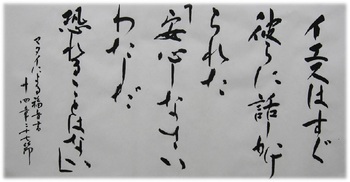 イエスはすぐ
彼らに話しかけ
られた
「安心しなさい
わたしだ
恐れることはない」
マタイによる福音書
十四章二十七節